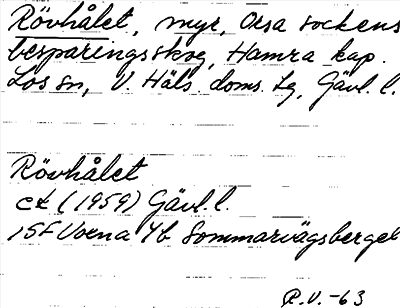 Rövhålet, myr, Orsa sockens
besparingsskog, Hamra kap.
Los sn, V. Häls. doms. lg, Gävl. l.
Rövhålet
ek (1959) Gävl. l.
15F Voxna 4b Sommarvägsberget
P.V. -63